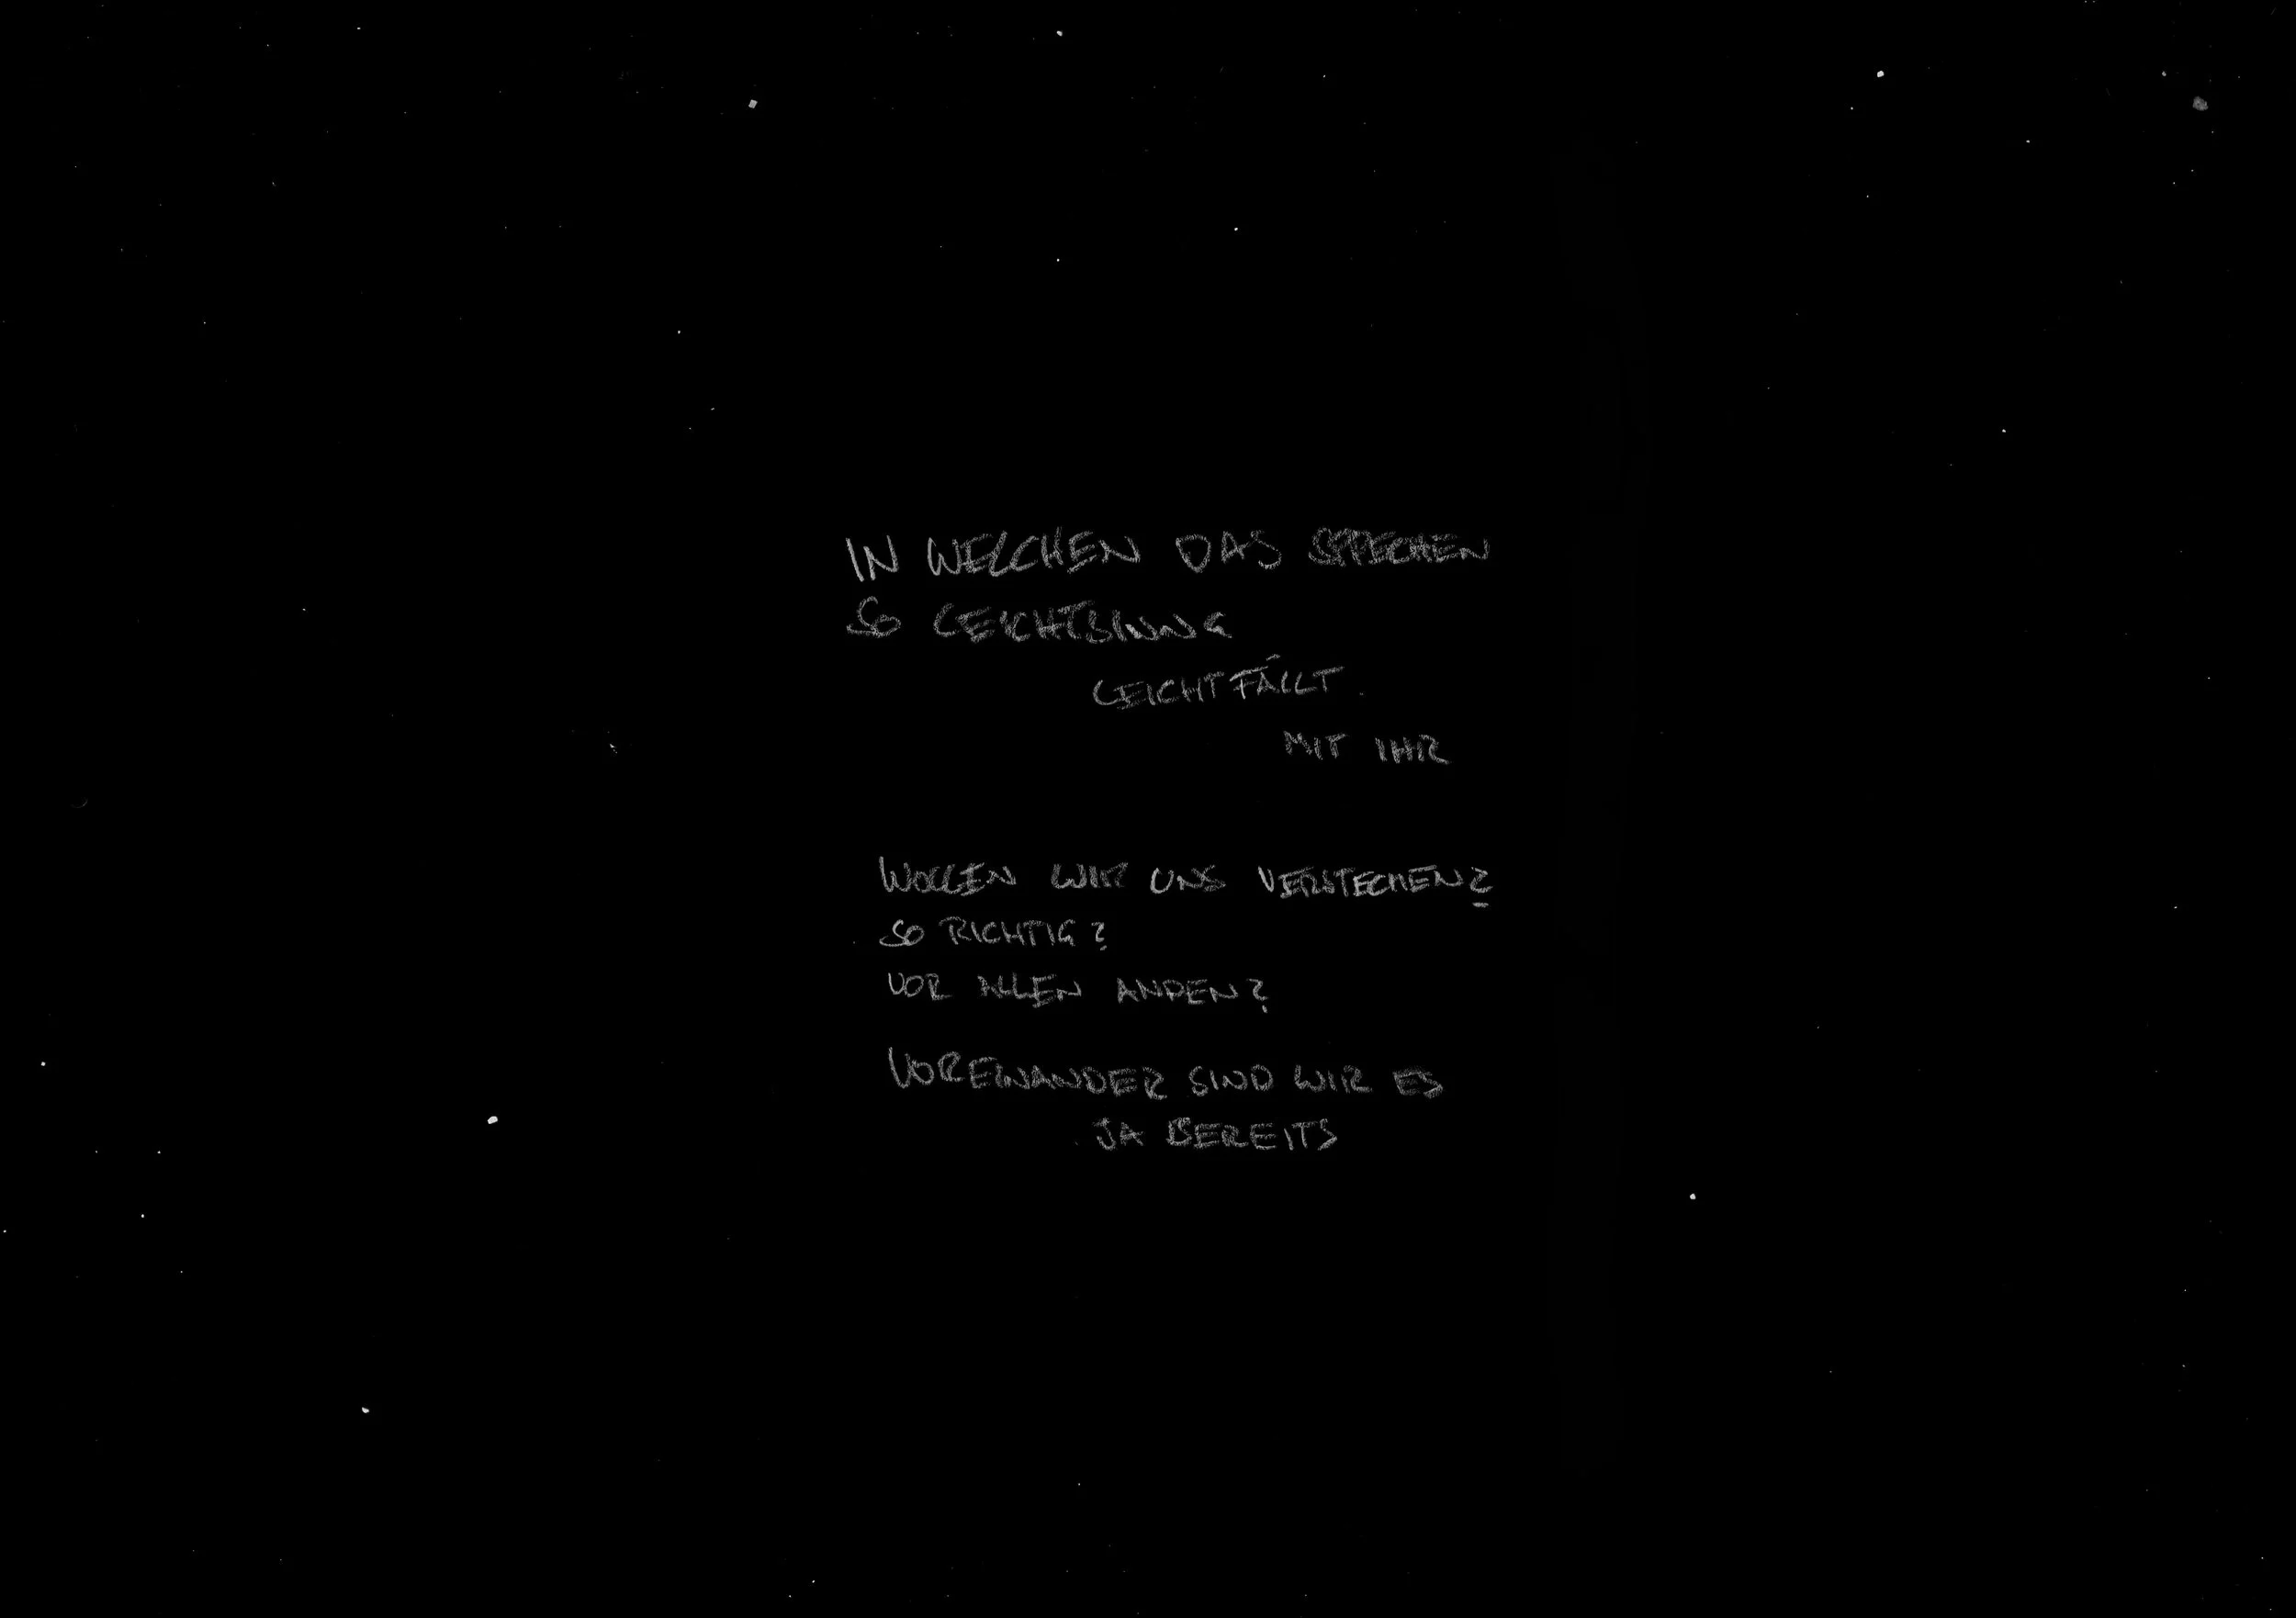 IN WELCHEN DAS SPRECHEN
SO LEICHTSINNG
LEICHTFÄLLT.
MIT IHR
WOLLEN WIR UNS VERSTECKEN?
SO RICHTIG?
VOR ALLEN ANDEN?
VOREINANDER SIND WIR ES
JA BEREITS